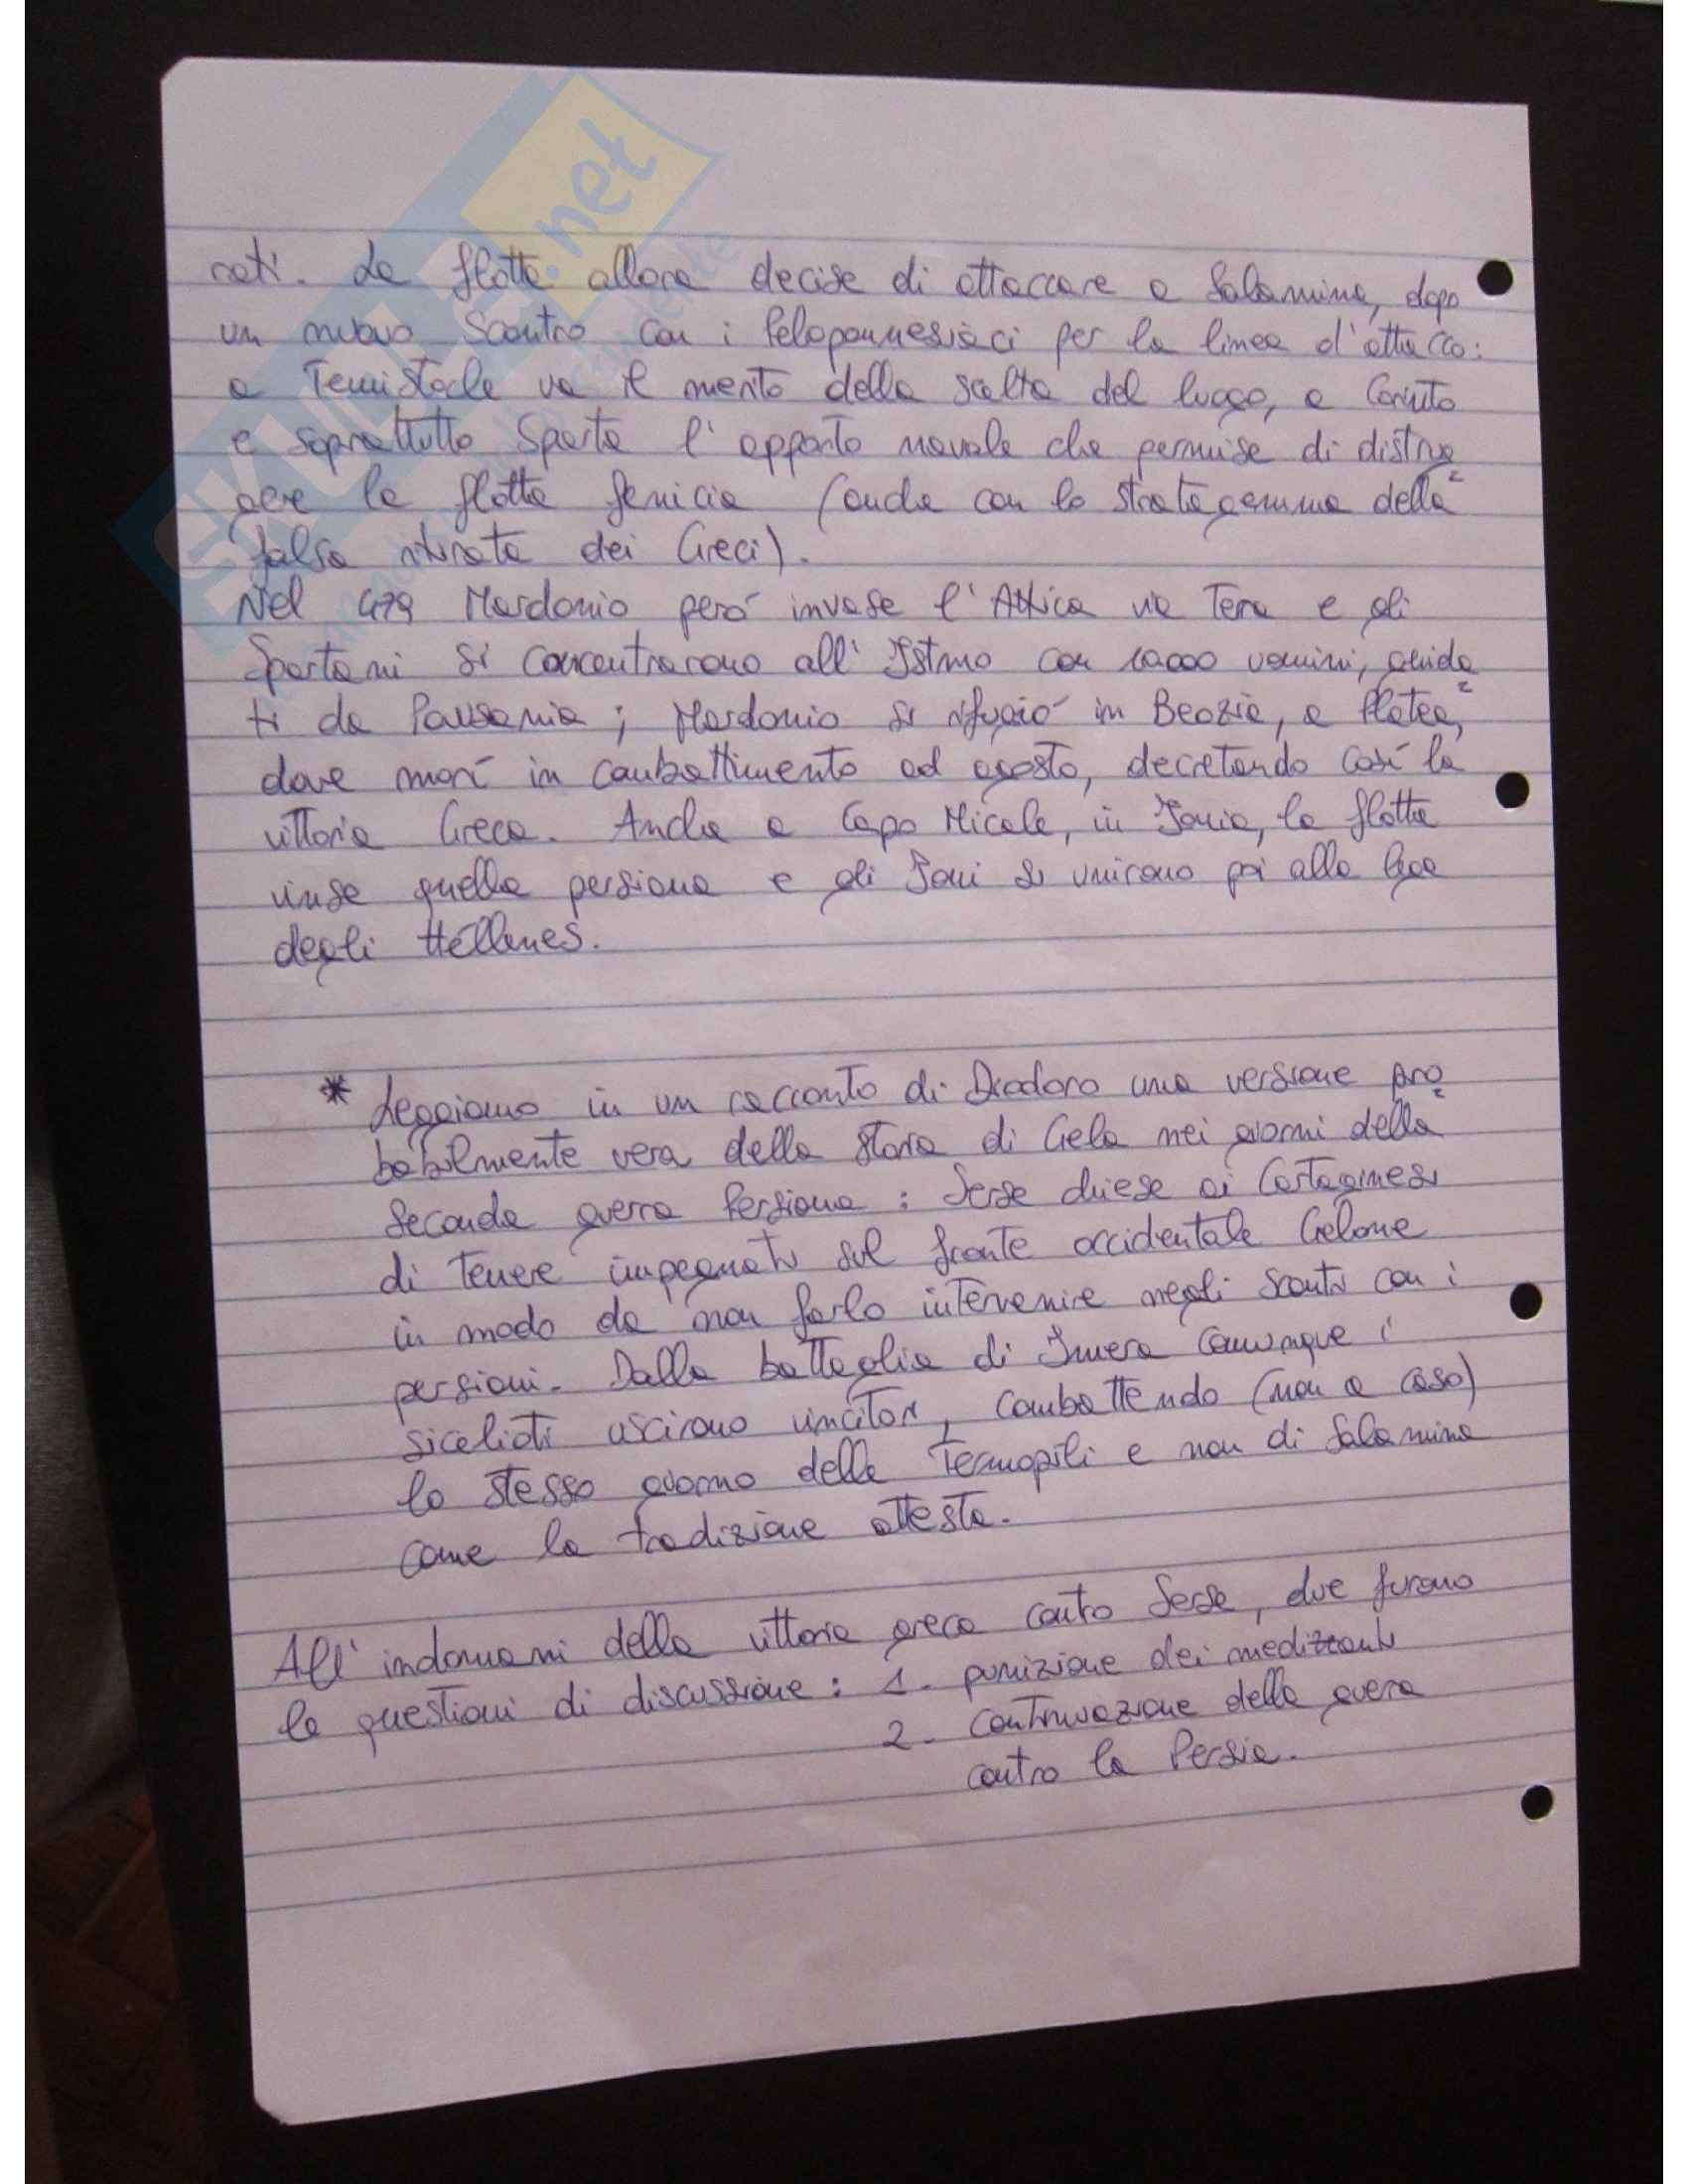 SKUOLA.net
rati. La flotta allora decise di attaccare a Salamina, dopo
un nuovo scontro con i Peloponnesiaci per la linea d'attacco:
a Temistocle va il merito della scelta del luogo, a Corinto
e soprattutto Sparta l'apporto navale che permise di distrug
gere la flotta fenicia (anche con lo stratagemma della
falsa ritirata dei Greci).
Nel 479 Mardonio però invase l'Attica via Terra e gli
Spartani si concentrarono all'Istmo con 10000 uomini, guida
ti da Pausania; Mardonio si rifugiò in Beozia, a Platea,
dove morì in combattimento ad agosto, decretando così la
vittoria Greca. Anche a Capo Micale, in Ionia, la flotta
vinse quella persiana e gli Ioni si unirono poi alla lega
degli Héllenes.
* Leggiamo in un racconto di Diodoro una versione pro
babilmente vera della storia di Gela nei giorni della
Seconda guerra Persiana: Serse chiese ai Cartaginesi
di tenere impegnati sul fronte occidentale Gelone
in modo da non farlo intervenire negli scontri con i
persiani. Dalla battaglia di Imera comunque i
sicelioti uscirono vincitori, combattendo (non a caso)
lo stesso giorno delle Termopili e non di Salamina
come la tradizione attesta.
All'indomani della vittoria greca contro Serse, due furono
le questioni di discussione: 1. punizione dei medizzanti
2. continuazione della guerra
contro la Persia.